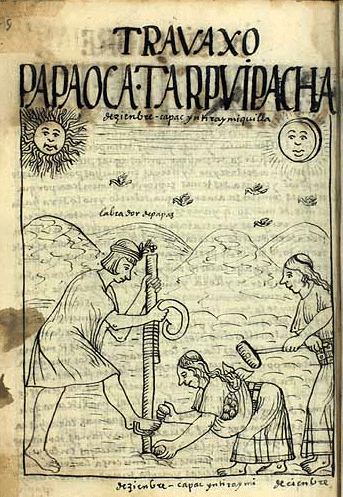 TRAVAXO
PAPAOCA·TARPVIPACHA
dezienbre – capac yntiraymiquilla
labrador de papas
deziembre – capac yntiraymi
deciembre